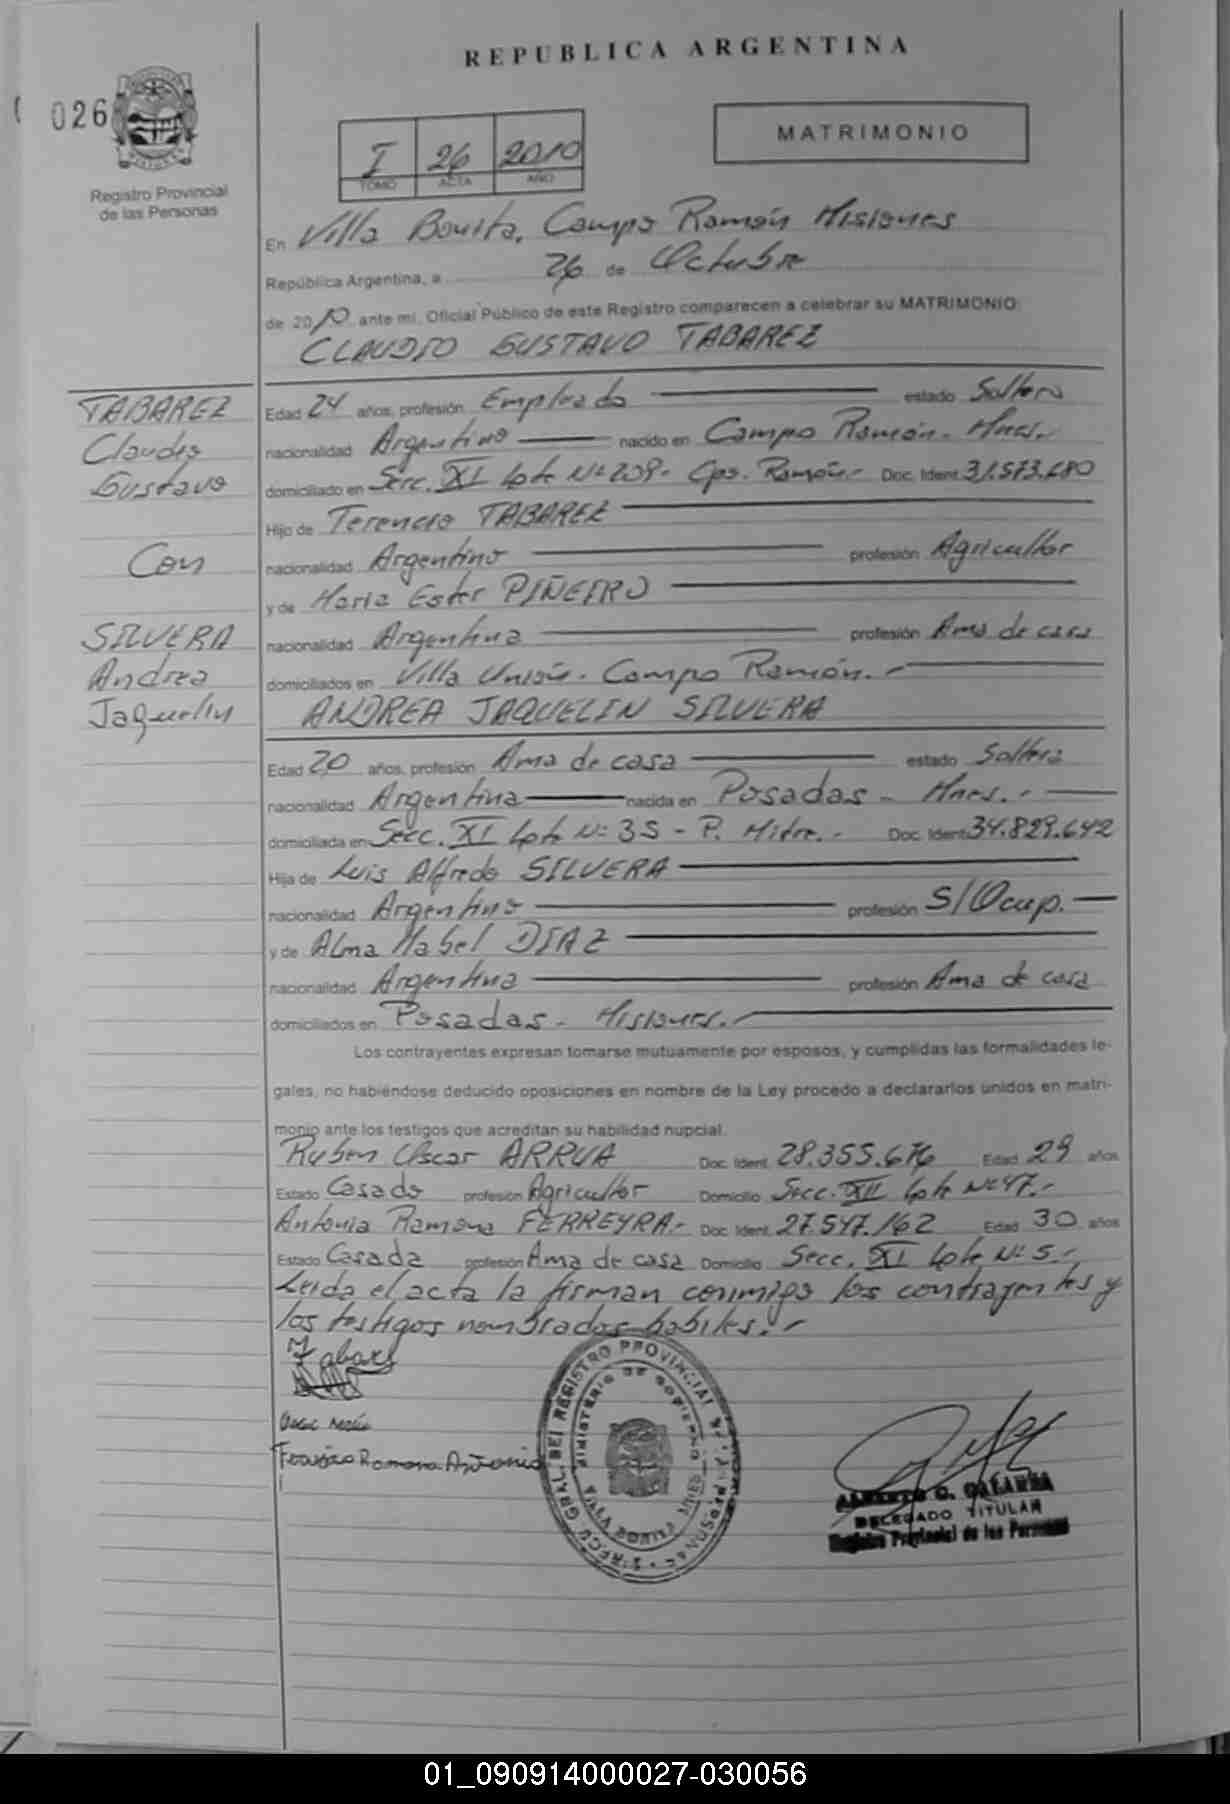 REPUBLICA ARGENTINA
026
MATRIMONIO
I 26 2010
TOMO ACTA AÑO
Registro Provincial
de las Personas
En Villa Bonita, Campo Ramón Misiones
República Argentina, a 26 de Octubre
de 2010 ante mi, Oficial Público de este Registro comparecen a celebrar su MATRIMONIO:
CLAUDIO GUSTAVO TABAREZ
TABAREZ
Claudio
Gustavo
Con
SILVERA
Andrea
Jaquelin
Edad 24 años, profesión Empleado estado Soltero
nacionalidad Argentino nacido en Campo Ramón - Mnes.-
domiciliado en Secc. XI Lote Nº 209- Cpo. Ramón.- Doc. Ident. 31.573.680
Hijo de Terencio TABAREZ
nacionalidad Argentino profesión Agricultor
y de Maria Ester PIÑEIRO
nacionalidad Argentina profesión Ama de casa
domiciliados en Villa Unión - Campo Ramón.-
ANDREA JAQUELIN SILVERA
Edad 20 años, profesión Ama de casa estado Soltera
nacionalidad Argentina nacida en Posadas - Mnes.-
domiciliada en Secc. XI Lote Nº 35 - P. Mitre.- Doc. Ident. 34.829.642
Hija de Luis Alfredo SILVERA
nacionalidad Argentino profesión S/Ocup.
y de Alma Mabel DIAZ
nacionalidad Argentina profesión Ama de casa
domiciliados en Posadas - Misiones.-
Los contrayentes expresan tomarse mutuamente por esposos, y cumplidas las formalidades le-
gales, no habiéndose deducido oposiciones en nombre de la Ley procedo a declararlos unidos en matri-
monio ante los testigos que acreditan su habilidad nupcial.
Ruben Oscar ARRUA Doc. Ident. 28.355.676 Edad 29 años
Estado Casado profesión Agricultor Domicilio Secc. XII Lote Nº 47.-
Antonia Ramona FERREYRA.- Doc. Ident. 27.547.162 Edad 30 años
Estado Casada profesión Ama de casa Domicilio Secc. XI Lote Nº 5.-
Leida el acta la firman conmigo los contrayentes y
los testigos nombrados habiles.-
Ramona Antonia
REGISTRO PROVINCIAL DE LAS PERSONAS
MINISTERIO DE GOBIERNO
VILLA BONITA
DELEGADO TITULAR
Registro Provincial de las Personas
01_090914000027-030056